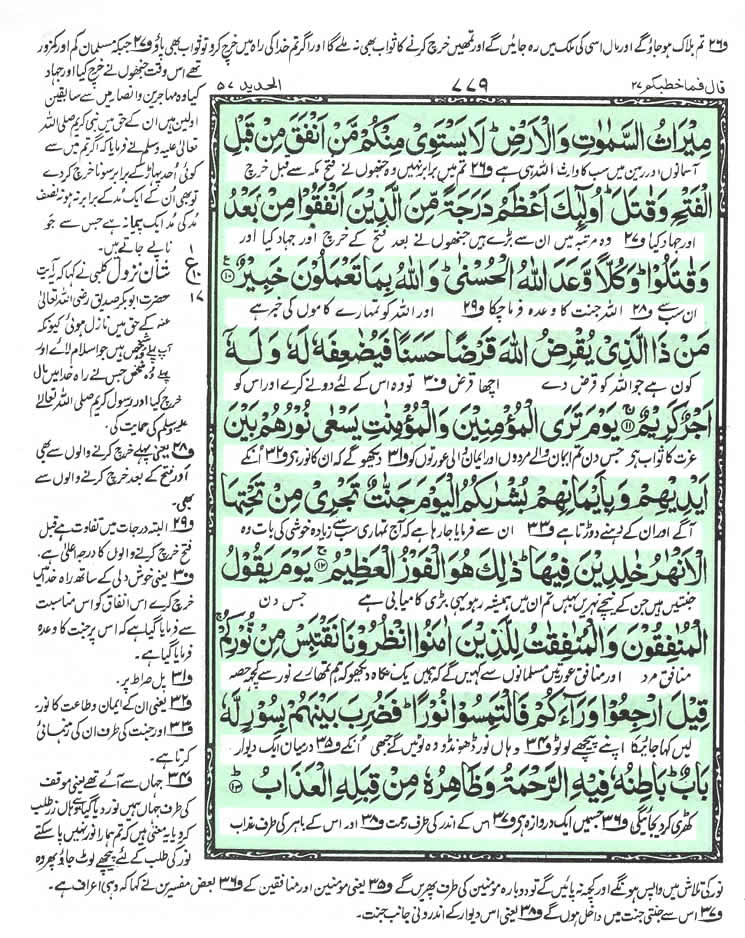 و۲۶ تم ہلاک ہوجاؤ گے اور مال اسی کی ملک میں رہ جائیں گے اور تمھیں خرچ کرنے کا ثواب بھی نہ ملے گا اور اگر تم خدا کی راہ میں خرچ کرو تو ثواب بھی پاؤ و۲۷ جبکہ مسلمان کم اور کمزور
قال فماخطبکم ۲۷
۷۷۹
الحدید ۵۷
مِيْرَاثُ السَّمٰوٰتِ وَالْاَرْضِ ؕ لَا يَسْتَوِىْ مِنْكُمْ مَّنْ اَنْفَقَ مِنْ قَبْلِ
آسمانوں اور زمین میں سب کا وارث اللہ ہی ہے و۲۶ تم میں برابر نہیں وہ جنھوں نے فتح مکہ سے قبل خرچ
الْفَتْحِ وَقٰتَلَ ؕ اُولٰٓئِكَ اَعْظَمُ دَرَجَةً مِّنَ الَّذِيْنَ اَنْفَقُوْا مِنْۢ بَعْدُ
اور جہاد کیا و۲۷ وہ مرتبہ میں ان سے بڑے ہیں جنھوں نے بعد فتح کے خرچ اور جہاد کیا اور
وَقٰتَلُوْا ؕ وَكُلًّا وَّعَدَ اللّٰهُ الْحُسْنٰى ؕ وَاللّٰهُ بِمَا تَعْمَلُوْنَ خَبِيْرٌ ۝۱۰
ان سب سے و۲۸ اللہ جنت کا وعدہ فرماچکا و۲۹ اور اللہ کو تمہارے کاموں کی خبر ہے
مَنْ ذَا الَّذِىْ يُقْرِضُ اللّٰهَ قَرْضًا حَسَنًا فَيُضٰعِفَهٗ لَهٗ وَلَهٗۤ
کون ہے جو اللہ کو قرض دے اچھا قرض و۳۰ تو وہ اس کے لئے دونے کرے اور اس کو
اَجْرٌ كَرِيْمٌ ۝۱۱ يَوْمَ تَرَى الْمُؤْمِنِيْنَ وَالْمُؤْمِنٰتِ يَسْعٰى نُوْرُهُمْ بَيْنَ
عزت کا ثواب ہے جس دن تم ایمان والے مردوں اور ایمان والی عورتوں کو و۳۱ دیکھو گے کہ ان کا نور ہے و۳۲ انکے
اَيْدِيْهِمْ وَبِاَيْمَانِهِمْ بُشْرٰىكُمُ الْيَوْمَ جَنّٰتٌ تَجْرِىْ مِنْ تَحْتِهَا
آگے اور ان کے دہنے دوڑتا ہے و۳۳ ان سے فرمایا جارہا ہے کہ آج تمہاری سب سے زیادہ خوشی کی بات وہ
الْاَنْهٰرُ خٰلِدِيْنَ فِيْهَا ؕ ذٰلِكَ هُوَ الْفَوْزُ الْعَظِيْمُ ۝۱۲ يَوْمَ يَقُوْلُ
جنتیں ہیں جن کے نیچے نہریں بہیں تم ان میں ہمیشہ رہو یہی بڑی کامیابی ہے جس دن
الْمُنٰفِقُوْنَ وَالْمُنٰفِقٰتُ لِلَّذِيْنَ اٰمَنُوا انْظُرُوْنَا نَقْتَبِسْ مِنْ نُّوْرِكُمْ ۚ
منافق مرد اور منافق عورتیں مسلمانوں سے کہیں گے کہ ہمیں یک نگاہ دیکھو کہ ہم تمہارے نور سے کچھ حصہ
قِيْلَ ارْجِعُوْا وَرَآءَكُمْ فَالْتَمِسُوْا نُوْرًا ؕ فَضُرِبَ بَيْنَهُمْ بِسُوْرٍ لَّهٗ
لیں کہا جائیگا اپنے پیچھے لوٹو و۳۴ وہاں نور ڈھونڈو وہ لوٹیں گے جبھی انکے و۳۵ درمیان ایک دیوار
بَابٌ ؕ بَاطِنُهٗ فِيْهِ الرَّحْمَةُ وَظَاهِرُهٗ مِنْ قِبَلِهِ الْعَذَابُ ؕ ۝۱۳
کھڑی کردیجائیگی و۳۶ جسمیں ایک دروازہ ہے و۳۷ اس کے اندر کی طرف رحمت و۳۸ اور اس کے باہر کی طرف عذاب
تھے اس وقت جنھوں نے خرچ کیا اور جہاد
کیا وہ مہاجرین و انصار میں سے سابقین
اولین ہیں ان کے حق میں نبی کریم صلی اللہ
تعالٰی علیہ وسلم نے فرمایا کہ اگر تم میں سے
کوئی اُحد پہاڑ کے برابر سونا خرچ کردے
تو بھی ان کے ایک مُد کے برابر نہ ہو نہ نصف
مُد کی مُد ایک پیمانہ ہے جس سے جَو
ناپے جاتے ہیں۔
۱
ع
۱۰
۱۷
شان نزول کلبی نے کہا کہ یہ آیت
حضرت ابوبکر صدیق رضی اللہ تعالٰی
عنہ کے حق میں نازل ہوئی کیونکہ
آپ پہلے شخص ہیں جو اسلام لائے اور
پہلے وہ شخص جس نے راہ خدا میں مال
خرچ کیا اور رسول کریم صلی اللہ تعالٰی
علیہ وسلم کی حمایت کی۔
و۲۸ یعنی پہلے خرچ کرنے والوں سے بھی
اور فتح کے بعد خرچ کرنے والوں سے
بھی۔
و۲۹ البتہ درجات میں تفاوت ہے قبل
فتح خرچ کرنے والوں کا درجہ اعلیٰ ہے۔
و۳۰ یعنی خوش دلی کے ساتھ راہ خدا میں
خرچ کرے اس انفاق کو اس مناسبت
سے فرمایا گیا ہے کہ اس پر جنت کا وعدہ
فرمایا گیا ہے۔
و۳۱ پل صراط پر۔
و۳۲ یعنی ان کے ایمان و طاعت کا نور۔
و۳۳ اور جنت کی طرف ان کی رہنمائی
کرتا ہے۔
و۳۴ جہاں سے آئے تھے یعنی موقف
کی طرف جہاں ہمیں نور دیا گیا تو وہاں نور طلب
کرو یا یہ معنی ہیں کہ تم ہمارا نور نہیں پاسکتے
نور کی طلب کے لئے پیچھے لوٹ جاؤ پھر وہ
نور کی تلاش میں واپس ہونگے اور کچھ نہ پائیں گے تو دوبارہ مومنین کی طرف پھریں گے و۳۵ یعنی مومنین اور منافقین کے و۳۶ بعض مفسرین نے کہا کہ وہی اعراف ہے۔
و۳۷ اس سے جنتی جنت میں داخل ہوں گے و۳۸ یعنی اس دیوار کے اندرونی جانب جنت۔